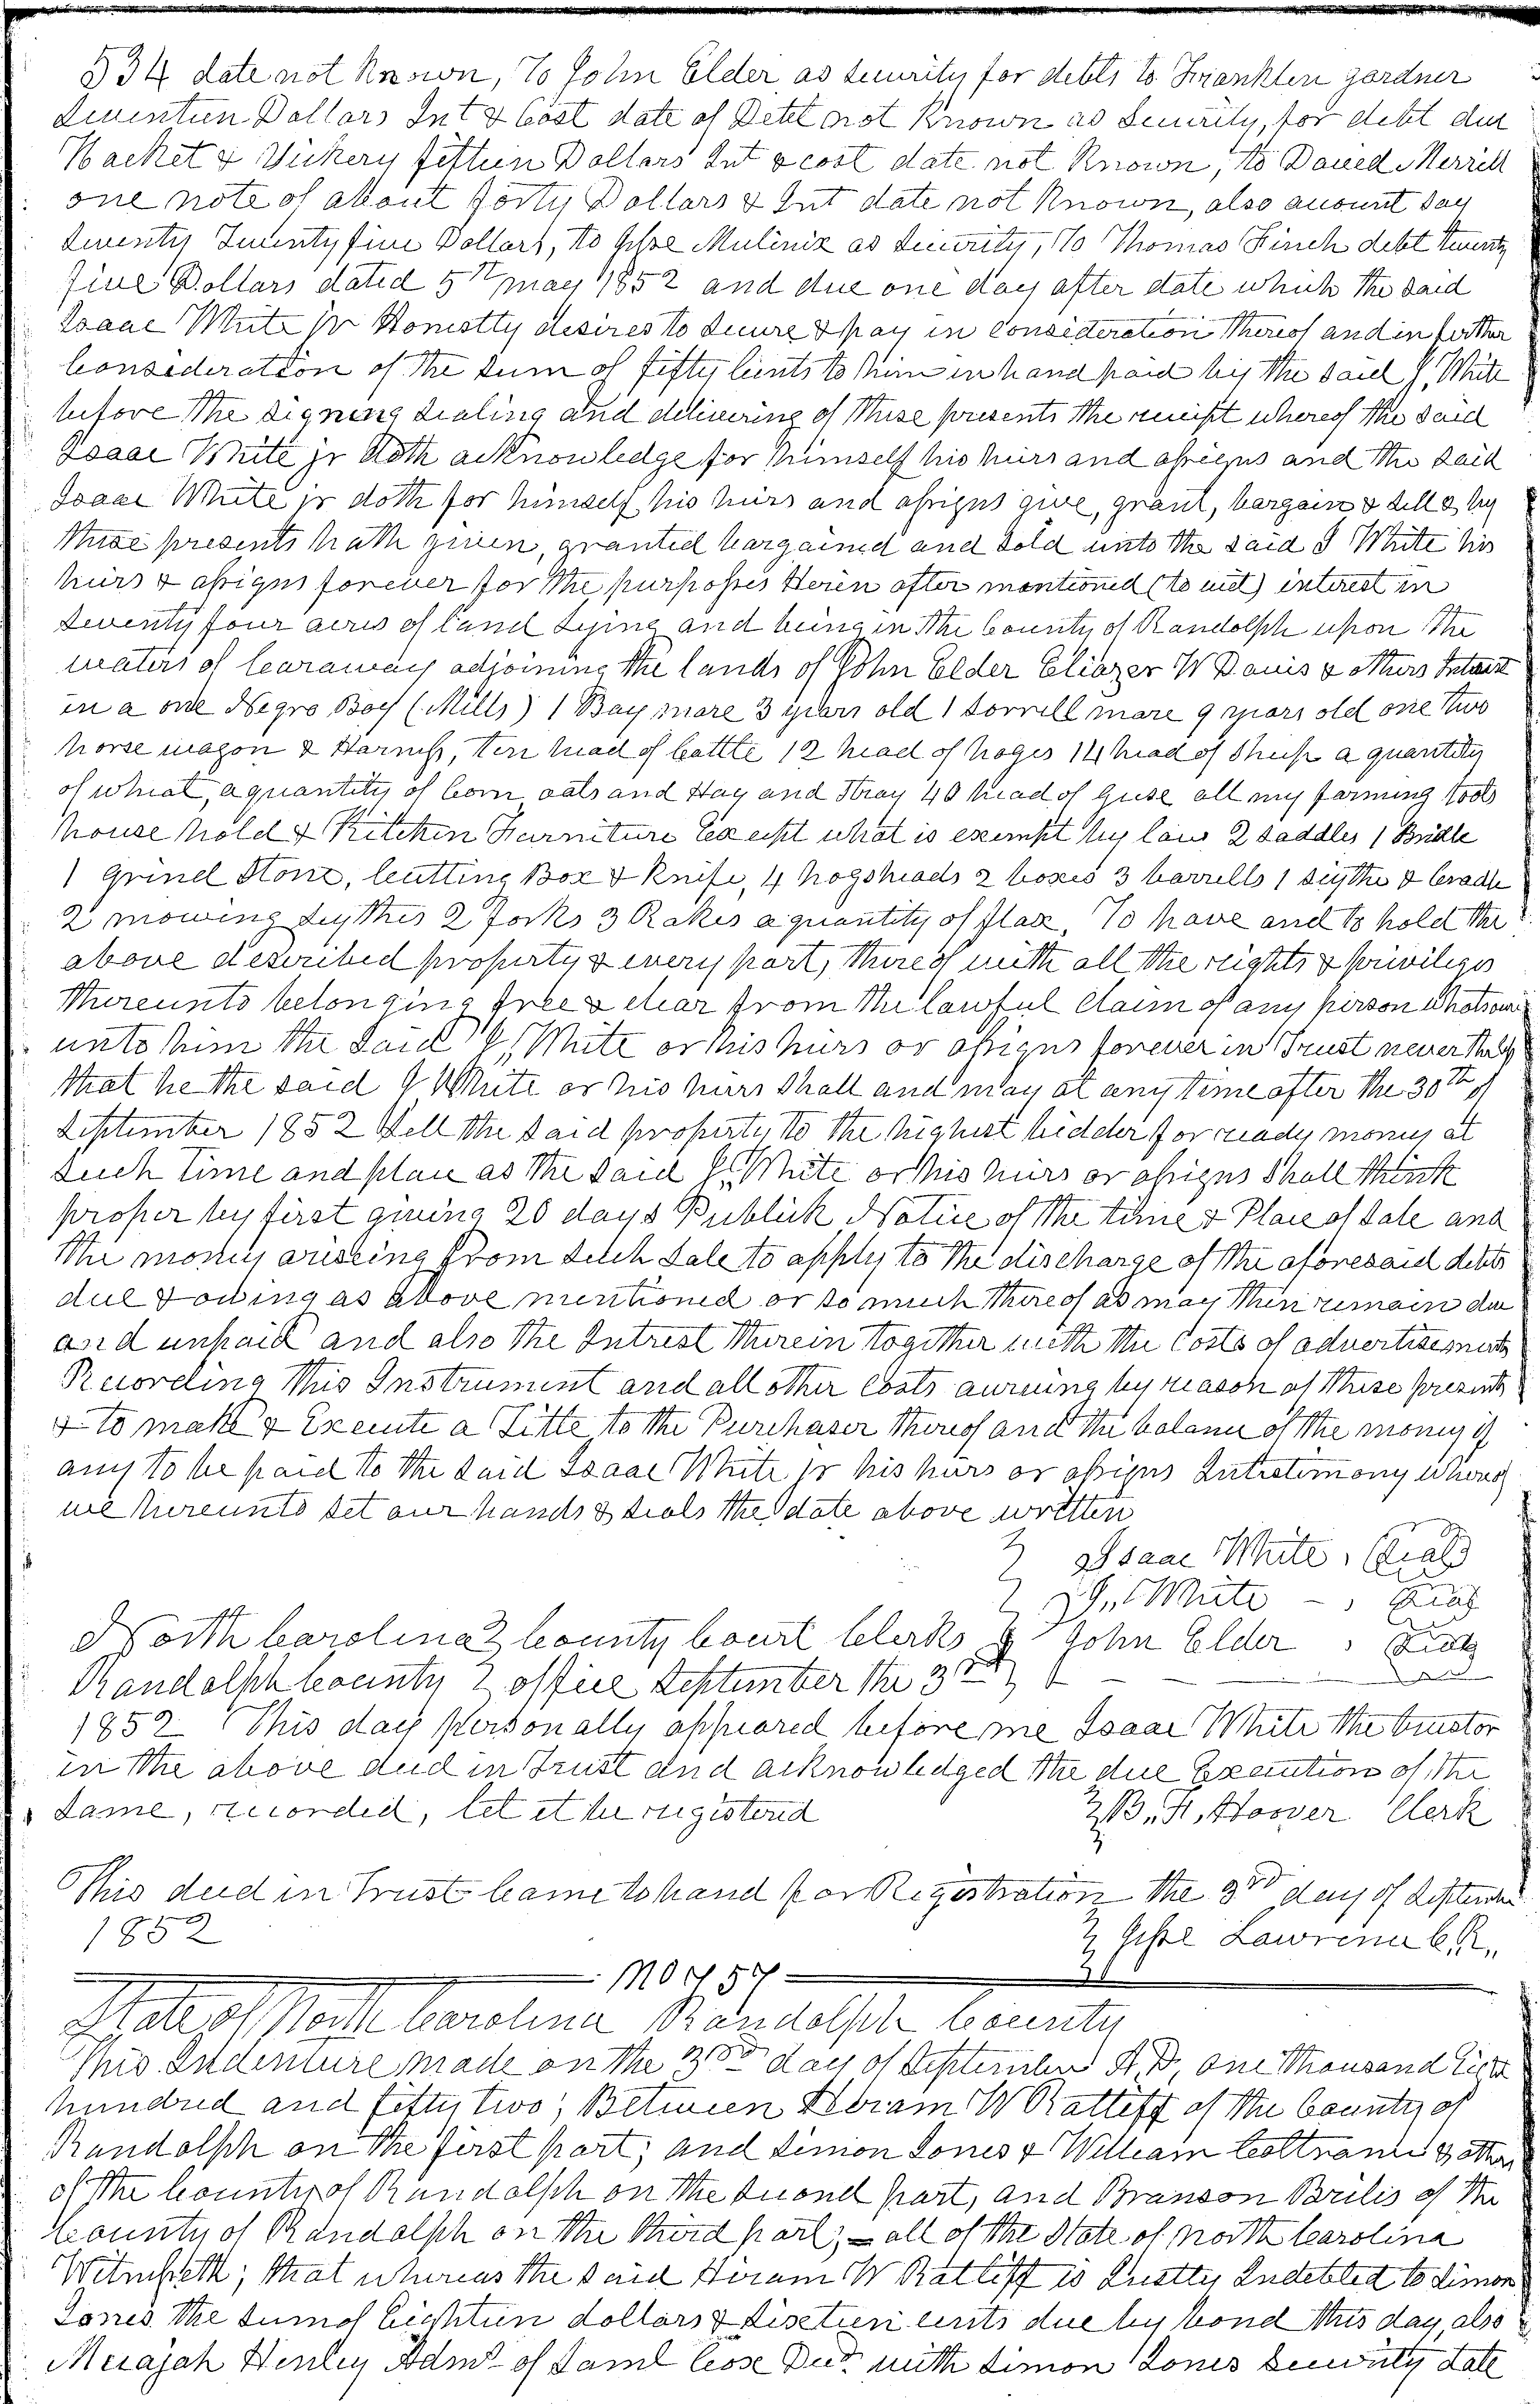 534 date not Known, To John Elder as security for debts to Franklin gardner
Seventeen Dollars Int & Cost date of Debt not Known as Security, for debt due
Hacket & Vickery fifteen Dollars Int & cost date not Known, to David Merrill
one note of about forty Dollars & Int date not Known, also account say
twenty Twenty five Dollars, to Jesse Mulinix as Security, To Thomas Finch debt twenty
five Dollars dated 5th may 1852 and due one day after date which the said
Isaac White jr Honestly desires to secure & pay in consideration thereof and in further
Consideration of the sum of fifty Cents to him in hand paid by the said J. White
before the signing sealing and delivering of these presents the receipt whereof the said
Isaac White jr doth acknowledge for himself his heirs and assigns and the said
Isaac White jr doth for himself his heirs and assigns give, grant, bargain & sell & by
these presents hath given, granted bargained and sold unto the said J White his
heirs & assigns forever for the purposses herein after mentioned (to wit) interest in
Seventy four acres of land lying and being in the County of Randolph upon the
waters of Carraway adjoining the lands of John Elder Eliazer W Davis & others Intrest
in a one Negro Boy (Mills) 1 Bay mare 3 years old 1 sorrell mare 9 years old one two
horse wagon & Harness, ten head of Cattle 12 head of hoges 14 head of Sheep a quantity
of wheat, a quantity of Corn oats and Hay and Stray 40 head of Geese all my farming tools
house hold & Kitchen Furniture Except what is exempt by law 2 saddles 1 Bridle
1 Grind Stone, Cutting Box & Knife, 4 hogsheads 2 boxes 3 barrells 1 sythe & Cradle
2 mowing sythes 2 forks 3 Rakes a quantity of flax, To have and to hold the
above described property & every part, thereof with all the reights & priviliges
thereunto belonging free & clear from the lawful claim of any person whatsoever
unto him the said J, White or his heirs or assigns forever in Trust nevertheless
that he the said J White or his heirs shall and may at any time after the 30th of
September 1852 Sell the said property to the highest bidder for ready money at
such time and place as the said J. White or his heirs or assigns shall think
proper by first giving 20 days Publick Notice of the time & Place of sale and
the money ariseing from such sale to apply to the discharge of the aforesaid debts
due & owing as above mentioned or so much thereof as may then remain due
and unpaid and also the Intrest therein together with the Costs of advertisements
Recording this Instrument and all other Costs acruing by reason of these presents
& to make & Execute a Title to the Purchaser thereof and the balance of the money if
any to be paid to the said Isaac White jr his heirs or assigns Intestimony whereof
we hereunto set our hands & seals the date above written
Isaac White, Seal
J, White - , Seal
North Carolina County Court Clerks John Elder , Seal
Randolph County office September the 3rd
1852 This day personally appeared before me Isaac White the trustor
in the above deed in Trust and acknowledged the due Execution of the
same, recorded, let it be registered B. F. Hoover Clerk
This deed in Trust Came to hand for Registration the 3rd day of September
1852 Jesse Lawrence C.R,,
State of North Carolina Randolph County
This Indenture made on the 3rd day of September A.D, one Thousand Eight
hundred and fifty two; Between Hiram W Ratliff of the County of
Randolph on the first part; and Simon Jones & William Coltrane & others
of the County of Randolph on the second part, and Branson Brilis of the
County of Randolph on the third part; - all of the State of North Carolina
Witnesseth; that whereas the said Hiram W Ratliff is Justly Indebted to Simon
Jones the sum of Eightien dollars & Sixteen cents due by bond this day, also
Micajah Henley Adm of Saml Cose Decd with Simon Jones security date